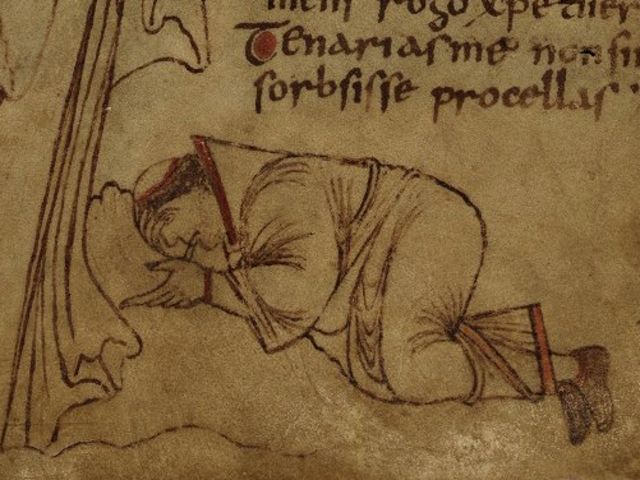 rogo xpe tuer
Tenarias me non sin
sorbsisse procellas